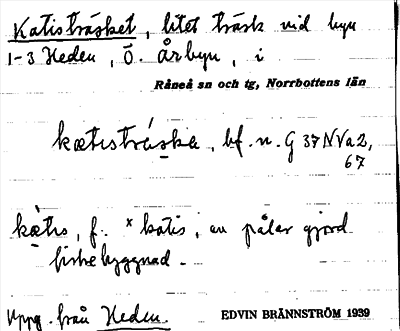 Katisträsket, litet träsk vid byn
1-3 Heden, Ö. Årbyn, i
Råneå sn och tg, Norrbottens län
kætısträ́ska, bf. n. G 37 NVa2,
67
kætıs, f. × katis, en pålar gjord
fiskebyggnad.
Uppg. från Heden.
EDVIN BRÄNNSTRÖM 1939